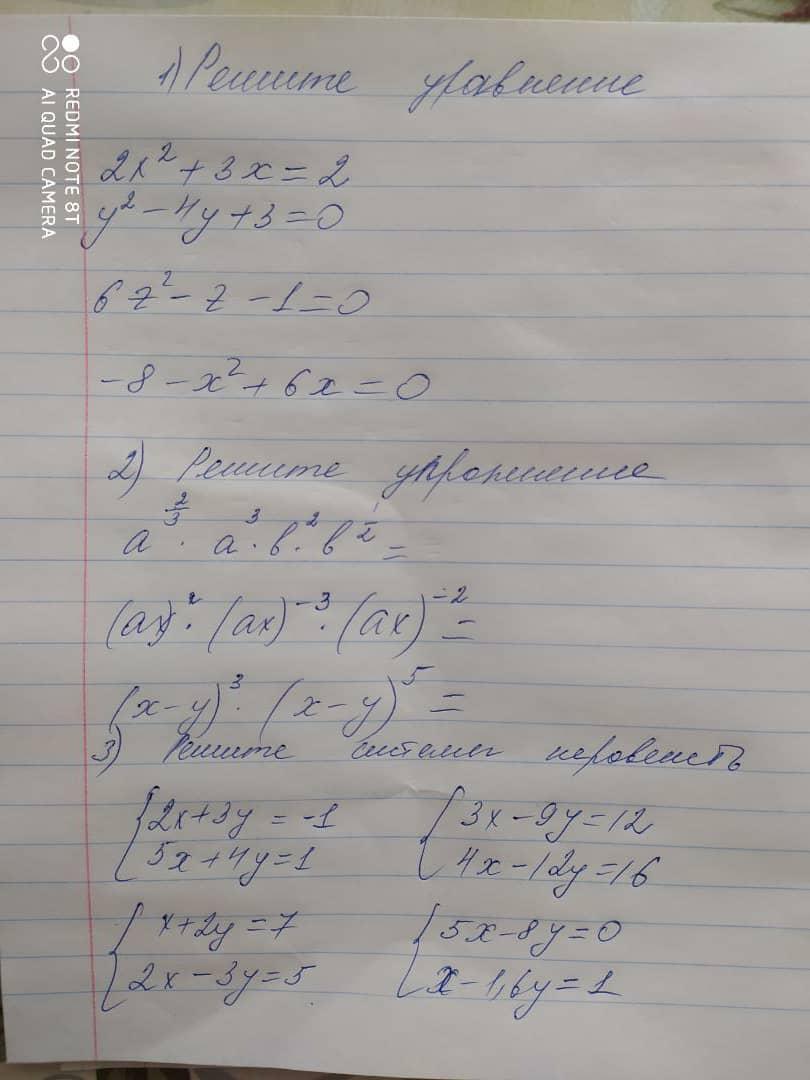 REDMI NOTE 8T
AI QUAD CAMERA
1) Решите уравнение
2x² + 3x = 2
y² - 4y + 3 = 0
6z² - z - 1 = 0
-8 - x² + 6x = 0
2) Решите упражнение
a^(2/3) · a³ · b² · b^(1/2) =
(ax)² · (ax)⁻³ · (ax)⁻² =
(x-y)³ · (x-y)⁵ =
3) Решите системы неровенств
{2x+3y = -1
5x+4y=1
{3x-9y=12
4x-12y=16
{x+2y=7
2x-3y=5
{5x-8y=0
x-1,6y=1